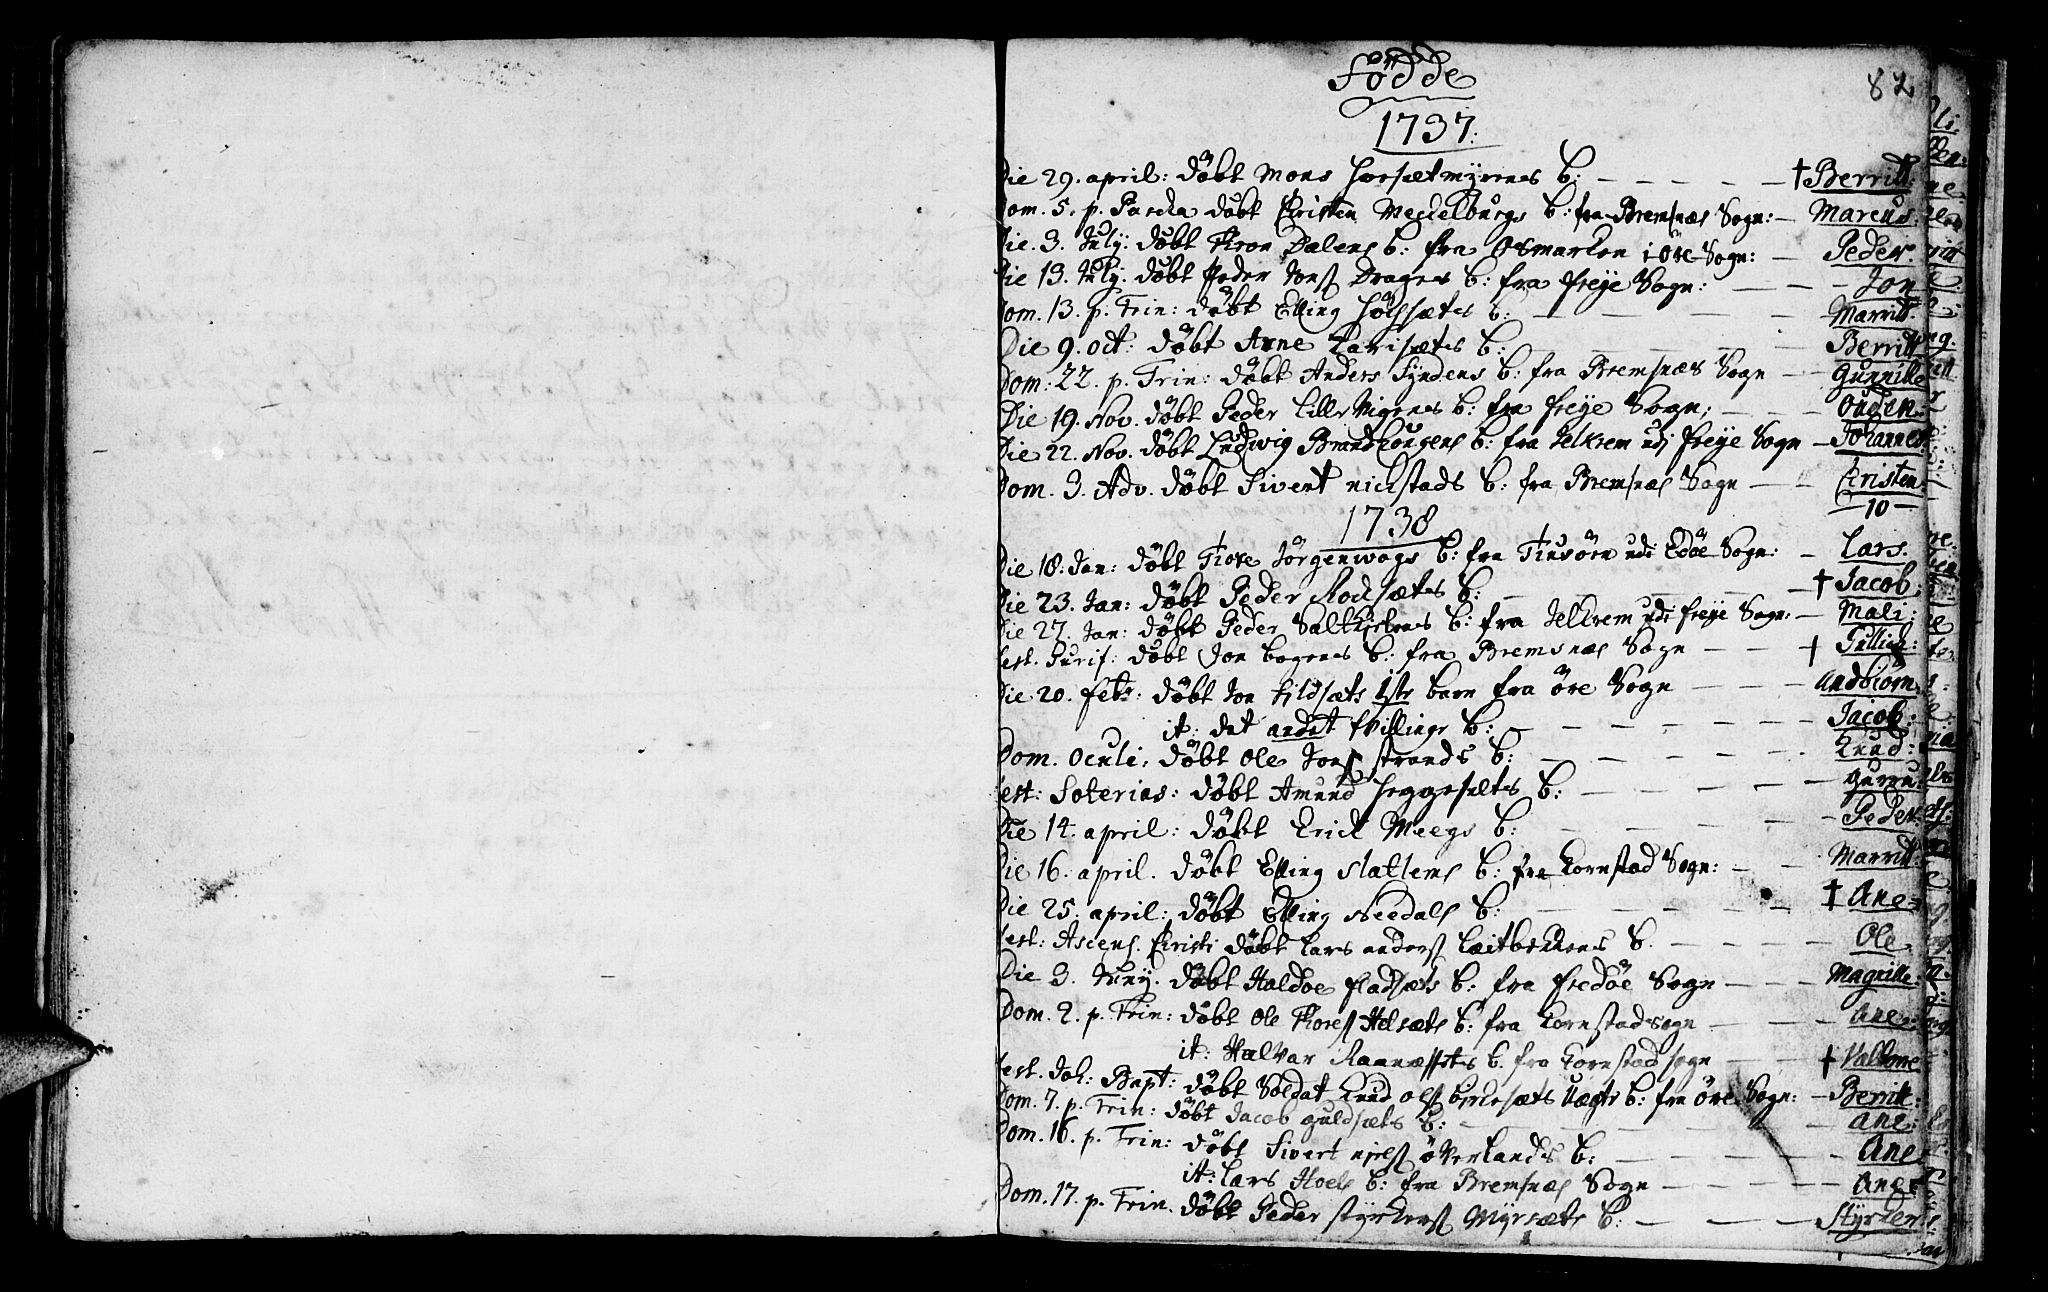 Födde
82
1737:
Die 29. april: döbt Mons Horsætmyrenes b: — — — — — † Berritt:
Dom. 5. p. Pascha döbt Christen Mechelburgs b: fra Bremsnæs Sogn: — Marcus.
Die. 3. July. döbt Thron Dalens b: fra Osmarken i Öre Sogn: — Peder.
Die 13. July. döbt Peder Jons Drages b: fra freye Sogn: — — — Jon
Dom. 13. p. Trin: döbt Elling Höchsætes b: — — — Marritt.
Die 9. oct: döbt Anne Larisætes b: — — — Berritt
Dom: 22. p. Trin: döbt Anders Syndens b: fra Bremsnæs Sogn — — Gunnille
Die 19. Nov. döbt Peder Lille b: fra freye Sogn: — — — Ouden
Die 22. Nov. döbt Ludwig Brandtzougens b: fra Jelkrem udi freye Sogn — Johannes.
Dom. 3. Adv. döbt Sivert nichstads b: fra Bremsnæs Sogn — — Christen.
10 —
1738
Die 18. Jan: döbt Tore Jörgenwogs b: fra Tiusöen udi Edöe Sogn: — Lars.
Die 23. Jan: döbt Peder Rochsætes b: — — — † Jacob.
Die 27. Jan: döbt Peder b: fra Jelkrem udi freye Sogn: — Mali.
fest. Purif: döbt Jon bogenes b: fra Bremsnæs Sogn — — †
Die 20. febr: döbt Jon 1ste barn fra öre Sogn — — — Andbiörn
it: det andet tvillings b: — — — Jacob:
Dom. Oculi, döbt Ole Jons strands b: — — — Knud:
fest: Soterias: döbt Amund Heggesetes b: — — — gurru:
Die 14. april: döbt Erich Meegs b: — — — Peder.
Die 16. april. döbt Elling Slatlems b: fra Kornstad Sogn: — — Marritt
Die 25. april: döbt Elling Needals b: — — — † Ane
fest: Ascens. Christi döbt Lars anders Leitbekkens b. — — — Ole
Die 3. Juny. döbt Haldoe fladsæts b: fra fredöe Sogn — — — Magnille
Dom. 2. p. Trin: döbt Ole Thores Helsæts b: fra Kornstad sogn — — Ane:
it: Halvar b. fra Kornstad sogn — — †
fest. Joh: Bapt: döbt Soldat Knud Ols b: fra öre Sogn: — Berritt.
Dom. 7. p. Trin: döbt Jacob guldsæts b: — — — Ane:
Dom. 16. p. Trin: döbt Sivert niels överlands b: — — — Ane
it: Lars Hoels b: fra Bremsnæs Sogn — — — Ane
Dom. 17. p. Trin. döbt Peder styrkers Myrsæts b: — — — Styrker